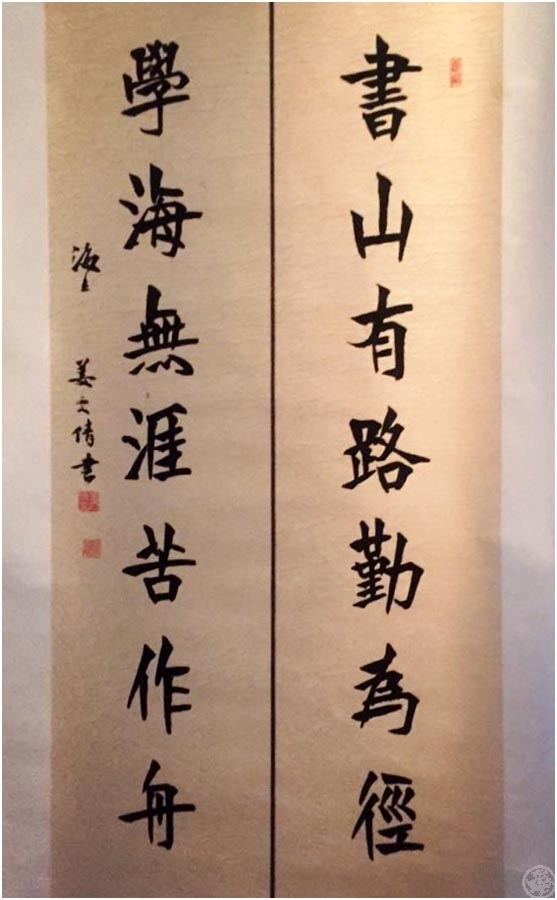 書山有路勤為徑
學海無涯苦作舟
海上
姜文倩書